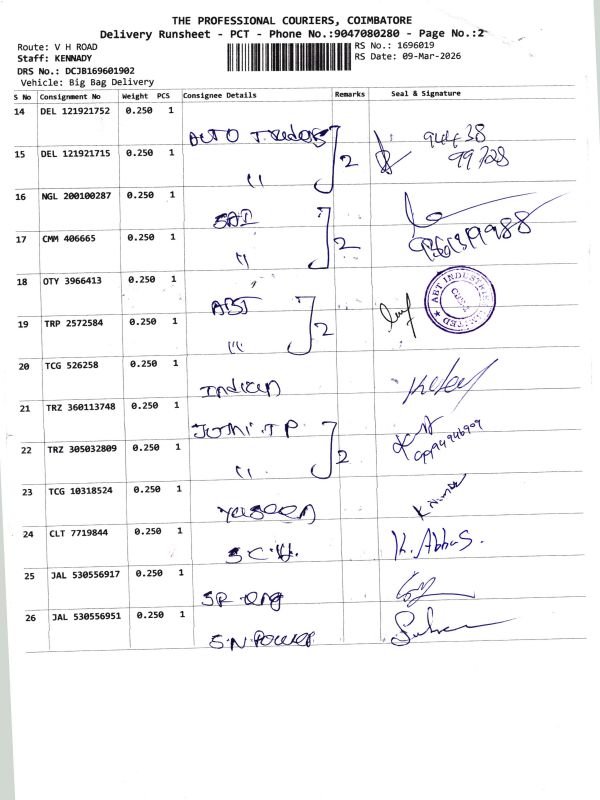 THE PROFESSIONAL COURIERS, COIMBATORE
Delivery Runsheet - PCT - Phone No.:9047080280 - Page No.:2
Route: V H ROAD
RS No.: 1696019
Staff: KENNADY
RS Date: 09-Mar-2026
DRS No.: DCJB169601902
Vehicle: Big Bag Delivery
S No Consignment No Weight PCS Consignee Details Remarks Seal & Signature
14 DEL 121921752 0.250 1
AUTO 94438
15 DEL 121921715 0.250 1 2 99728
"
16 NGL 200100287 0.250 1
SAI
17 CMM 406665 0.250 1 2
"
18 OTY 3966413 0.250 1
ABT ABT INDUSTRIES LIMITED
19 TRP 2572584 0.250 1 2
"
20 TCG 526258 0.250 1
Indian
21 TRZ 360113748 0.250 1
JOTHI.TP
22 TRZ 305032809 0.250 1 2
"
23 TCG 10318524 0.250 1
YASEEN
24 CLT 7719844 0.250 1 K. Abbas.
S.C.H.
25 JAL 530556917 0.250 1
SR Eng
26 JAL 530556951 0.250 1
S.N Power